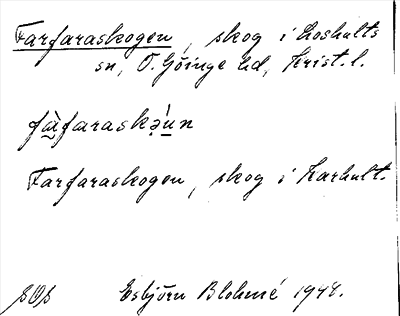 Farfaraskogen, skog i Loshults
sn, Ö. Göinge hd, Krist. l.
fà̰faraskə́ṵn
Farfaraskogen, skog i Karhult.
Esbjörn Blohmé 1944.